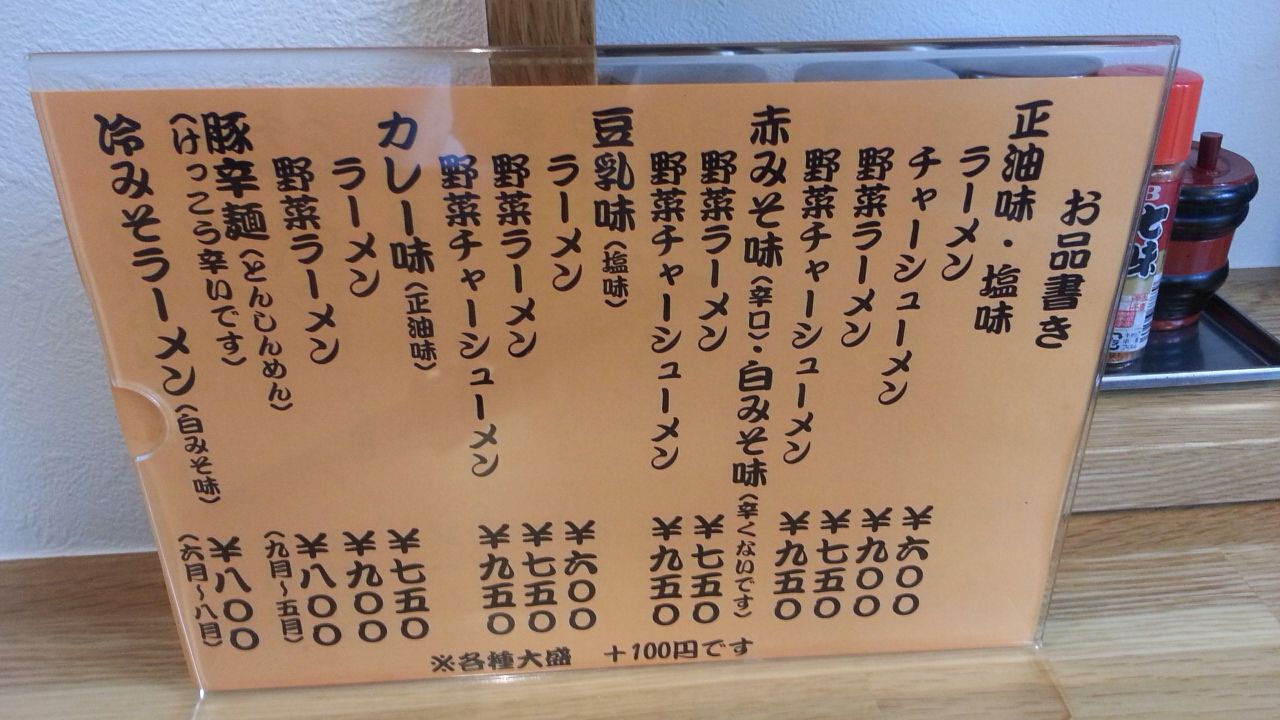 お品書き
正油味・塩味
ラーメン ¥六〇〇
チャーシューメン ¥九〇〇
野菜ラーメン ¥七五〇
野菜チャーシューメン ¥九五〇
赤みそ味(辛口)・白みそ味(辛くないです)
野菜ラーメン ¥七五〇
野菜チャーシューメン ¥九五〇
豆乳味(塩味)
ラーメン ¥六〇〇
野菜ラーメン ¥七五〇
野菜チャーシューメン ¥九五〇
カレー味(正油味)
ラーメン ¥七五〇
野菜ラーメン ¥九〇〇
豚辛麺(とんしんめん) ¥八〇〇
(けっこう辛いです) (九月~五月)
冷みそラーメン(白みそ味) ¥八〇〇
(六月~八月)
※各種大盛 +100円です
七味